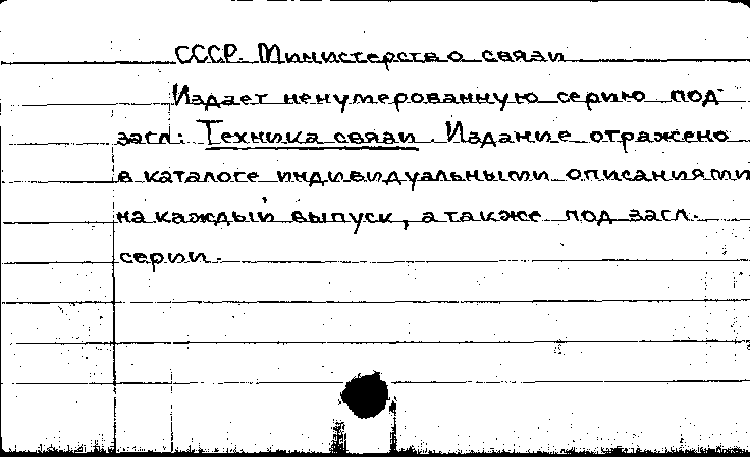 СССР. Министерство связи
Издает ненумерованную серию под
загл: Техника связи. Издание отражено
в каталоге индивидуальными описаниями
на каждый выпуск, а также под загл.
серии.